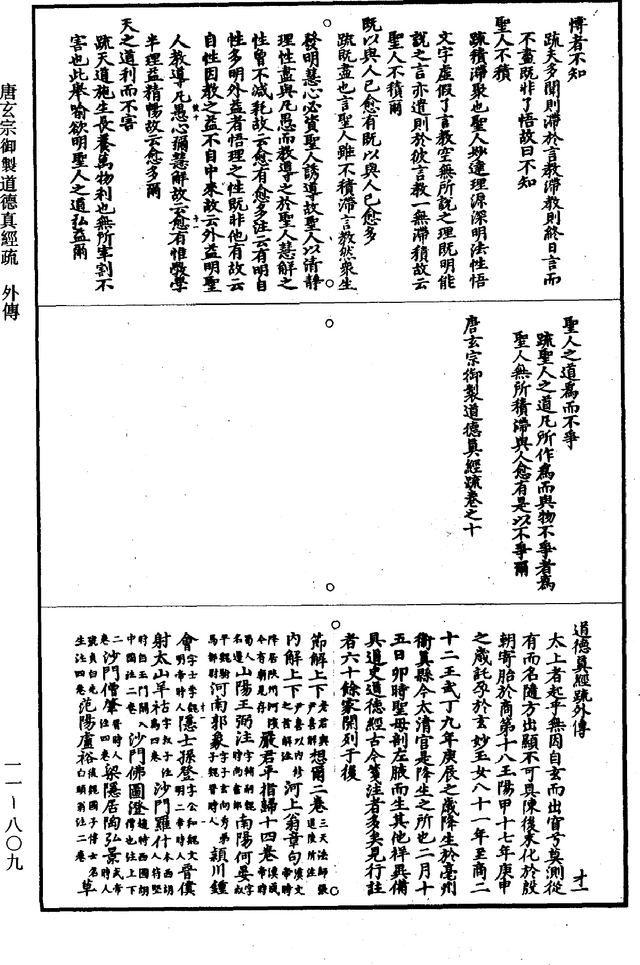 博者不知
疏夫多聞則滯於言教滯教則終日言而
不盡既非了悟故曰不知
聖人不積
疏積滯聚也聖人妙達理源深明法性悟
文字虛假了言教空無所說之理既明能
說之言亦遣則於彼言教一無滯積故云
聖人不積爾
既以與人已愈有既以與人已愈多
疏既盡也言聖人雖不積滯言教然衆生
發明慧心必資聖人誘導故聖人以清靜
理性盡與凡愚而教導之於聖人慧解之
性曾不減耗故云愈有愈多注云有明自
性多明外益者悟理之性既非他有故云
自性因教之益不自中來故云外益明聖
人教導凡愚心彌慧解故云愈有惟斆學
半理益精暢故云愈多爾
天之道利而不害
疏天道施生長養萬物利也無所宰割不
害也此舉喻欲明聖人之道弘益爾
聖人之道爲而不爭
疏聖人之道凡所作爲而與物不爭者爲
聖人無所積滯與人愈有是以不爭爾
唐玄宗御製道德真經疏卷之十
道德真經疏外傳
太上者起乎無因自玄而出窅兮莫測從
有而名隨方出顯不可具陳後來化於殷
朝寄胎於商第十八王陽甲十七年庚申
之歲託孕於玄妙玉女八十一年至商二
十二王武丁九年庚辰之歲降生於亳州
衛真縣今太清宫是降生之所也二月十
五日卯時聖母剖左腋而生其他祥異備
具道史道德經古今箋注者多矣見行註
者六十餘家開列于後
節解上下老君與尹喜解想爾二卷三天法師張道陵所注
内解上下尹喜以内修之旨解注河上翁章句漢文帝時
降居陝州河濱今有廟見存嚴君平指歸十四卷漢成帝時
蜀人名遵山陽王弼注字輔嗣魏時尚書郎南陽何晏字平叔魏
河南郭象字子玄向秀弟子魏晉時人潁川鍾
會字士季魏明帝時人隱士孫登字公和魏文明二帝時人晉僕
射太山羊祜字叔子注爲四卷沙門羅什本西胡人苻堅
時自玉門關入中國注二卷沙門佛圖澄趙時西國胡僧也注上下
二卷沙門僧肇晉時人注四卷梁隱居陶弘景武帝時人
號貞白先生注四卷范陽盧裕後魏國子博士名白頭翁注二卷草
唐玄宗御製道德真經疏 外傳
一一—八〇九